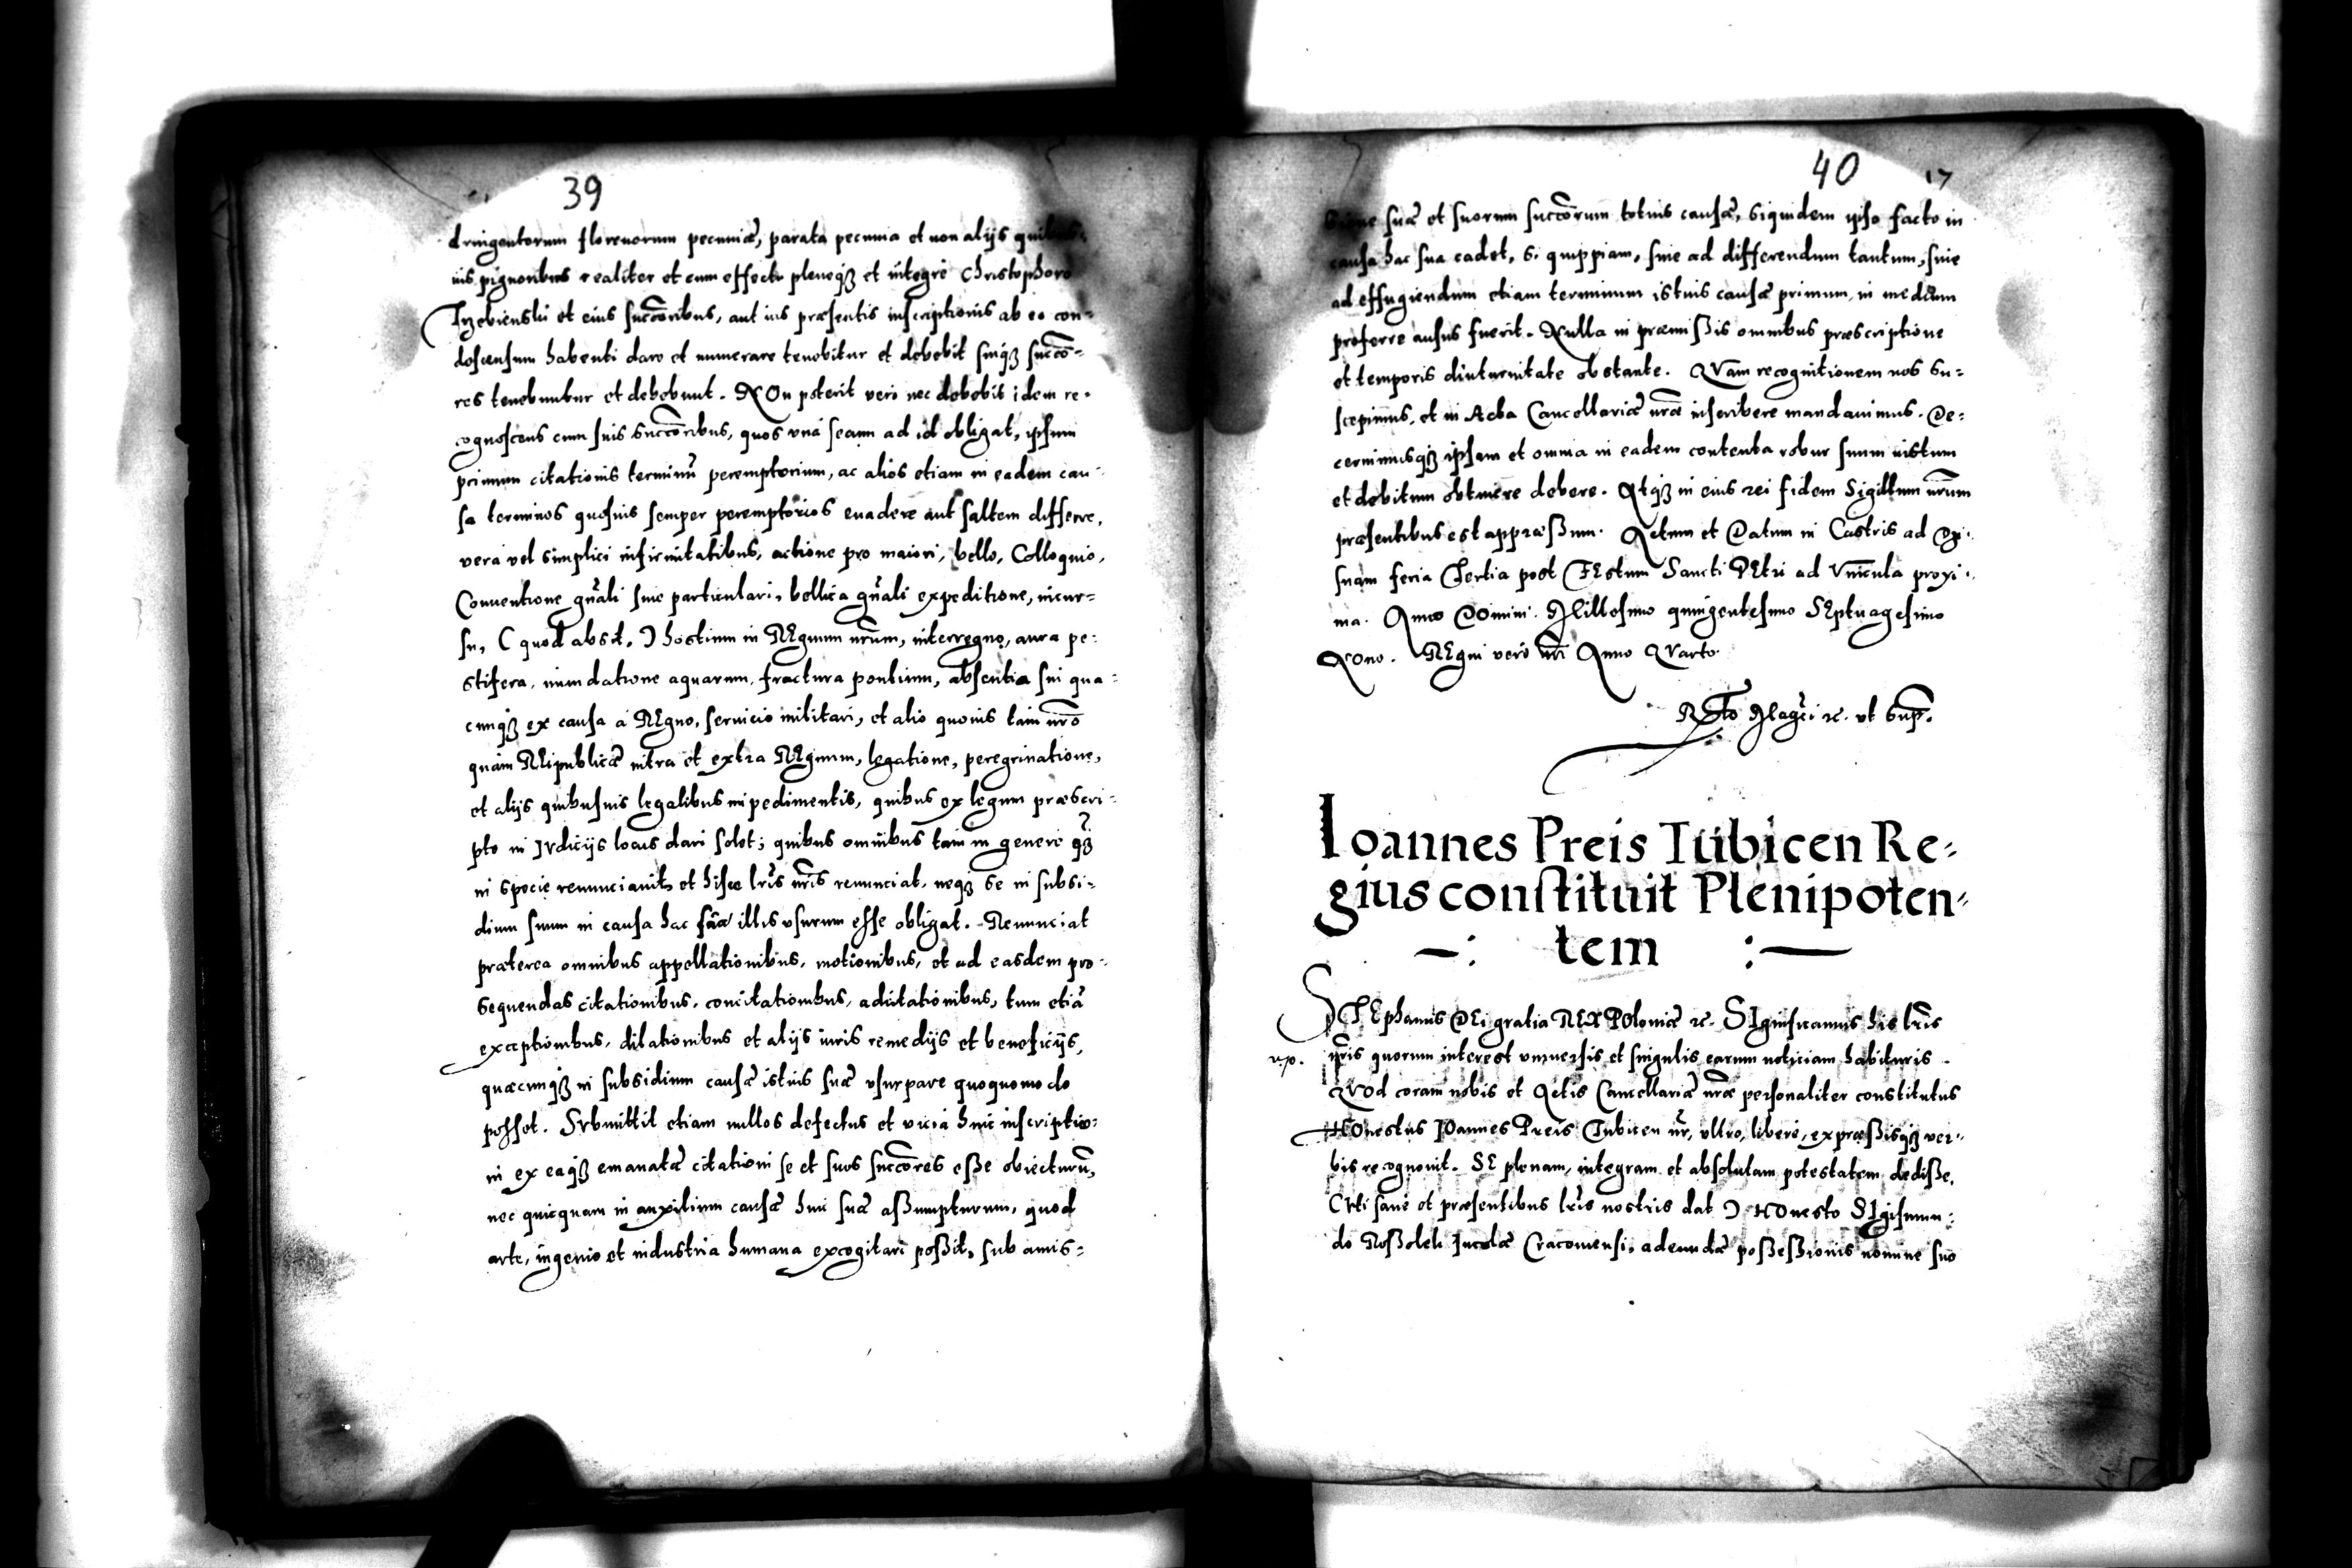 39
dringentorum florenorum pecuniæ, parata pecunia et non alijs quibus-
uis pignoribus realiter et cum effectu pleneqз et integre Christophoro
Trzebienski et eius succ̄oribus, aut ius præsentis inscriptionis ab eo con-
descensum habenti dare et numerare tenebitur et debebit suiqз succō-
res tenebuntur et debebunt. NOn poterit vero nec debebit idem re-
cognoscens cum suis succ̄oribus, quos vná secum ad id obligat, ipsum
primum citationis terminū peremptorium, ac alios etiam in eadem cau-
sa terminos quosuis semper peremptorios euadere aut saltem differre,
vera vel simplici infirmitatibus, actione pro maiori, bello, Colloquio,
Conuentione gn̄ali siue particulari, bellica gn̄ali expeditione, incur-
su, ( quod absit, ) hostium in REgnum nr̄um, interregno, aura pe-
stifera, inundatione aquarum, fractura pontium, absentia sui qua-
cunqз ex causa á REgno, seruicio militari, et alio quouis tam nr̄o
quam REipublicæ intra et extra REgnum, legatione, peregrinatione,
et alijs quibusuis legalibus impedimentis, quibus ex legum præscri-
pto in Jvdicijs locus dari solet; quibus omnibus tam in genere qз̄
in specie renunciauit, et hisce lr̄is nr̄is renunciat, neqз se in subsi-
dium suum in causa hac illis vsurum esse obligat. Renunciat
præterea omnibus appellationibus, motionibus, et ad easdem pro-
sequendas citationibus, concitationibus, adcitationibus, tum etiā
exceptionibus, dilationibus et alijs iuris remedijs et beneficijs,
quæcunqз in subsidium causæ istius suæ vsurpare quoquomodo
posset. Svbmittit etiam nullos defectus et vicia huic inscriptio-
ni ex eaqз emanatæ citationi se et suos succ̄ores eße obiecturū,
nec quicquam in auxilium causæ huic suæ aßumpturum, quod
arte, ingenio et industria humana excogitari poßit, sub amis-
40 17
sione suæ et suorum succ̄orum totius causæ, siquidem ipso facto in
causa hac sua cadet, si quippiam, siue ad differendum tantum, siue
ad effugiendum etiam terminum istius causæ primum, in medium
proferre ausus fuerit. Nulla in præmißis omnibus præscriptione
et temporis diuturnitate obstante. QVam recognitionem nos su-
scepimus, et in Acta Cancellariæ nr̄æ inscribere mandauimus. De-
cernimusqз ipsam et omnia in eadem contenta robur suum iustum
et debitum obtinere debere. Atqз in eius rei fidem Sigillum nr̄um
præsentibus est appræßum. Actum et Datum in Castris ad Di-
snam feria Tertia post FEstum Sancti PEtri ad Vincula proxi-
ma. Anno DOmini. Millesimo quingentesimo SEptuagesimo
NOno. REgni vero nr̄i Anno QVarto.
R͞to Mag̃ci ꝛc. vt sup̄.
Ioannes Preis Tubicen Re-
gius constituit Plenipoten-
-: tem :-
STEphanus DEi gratia REX POloniæ ꝛc. SIgnificamus his lr̄is
n̄ris quorum interest vniuersis et singulis earum noticiam habituris.
QVod coram nobis et Actis Cancellariæ nr̄æ personaliter constitutus
HOnestus IOannes Preis Tubicen nr̄, vltro, libere, expræßisqз ver-
bis recognouit. SE plenam, integram et absolutam potestatem dediße,
( Vti sane et præsentibus lr̄is nostris dat ) HOnesto SIgismun-
do Roßoleti Incolæ Cracouiensi, adeundæ poßeßionis nomine suo